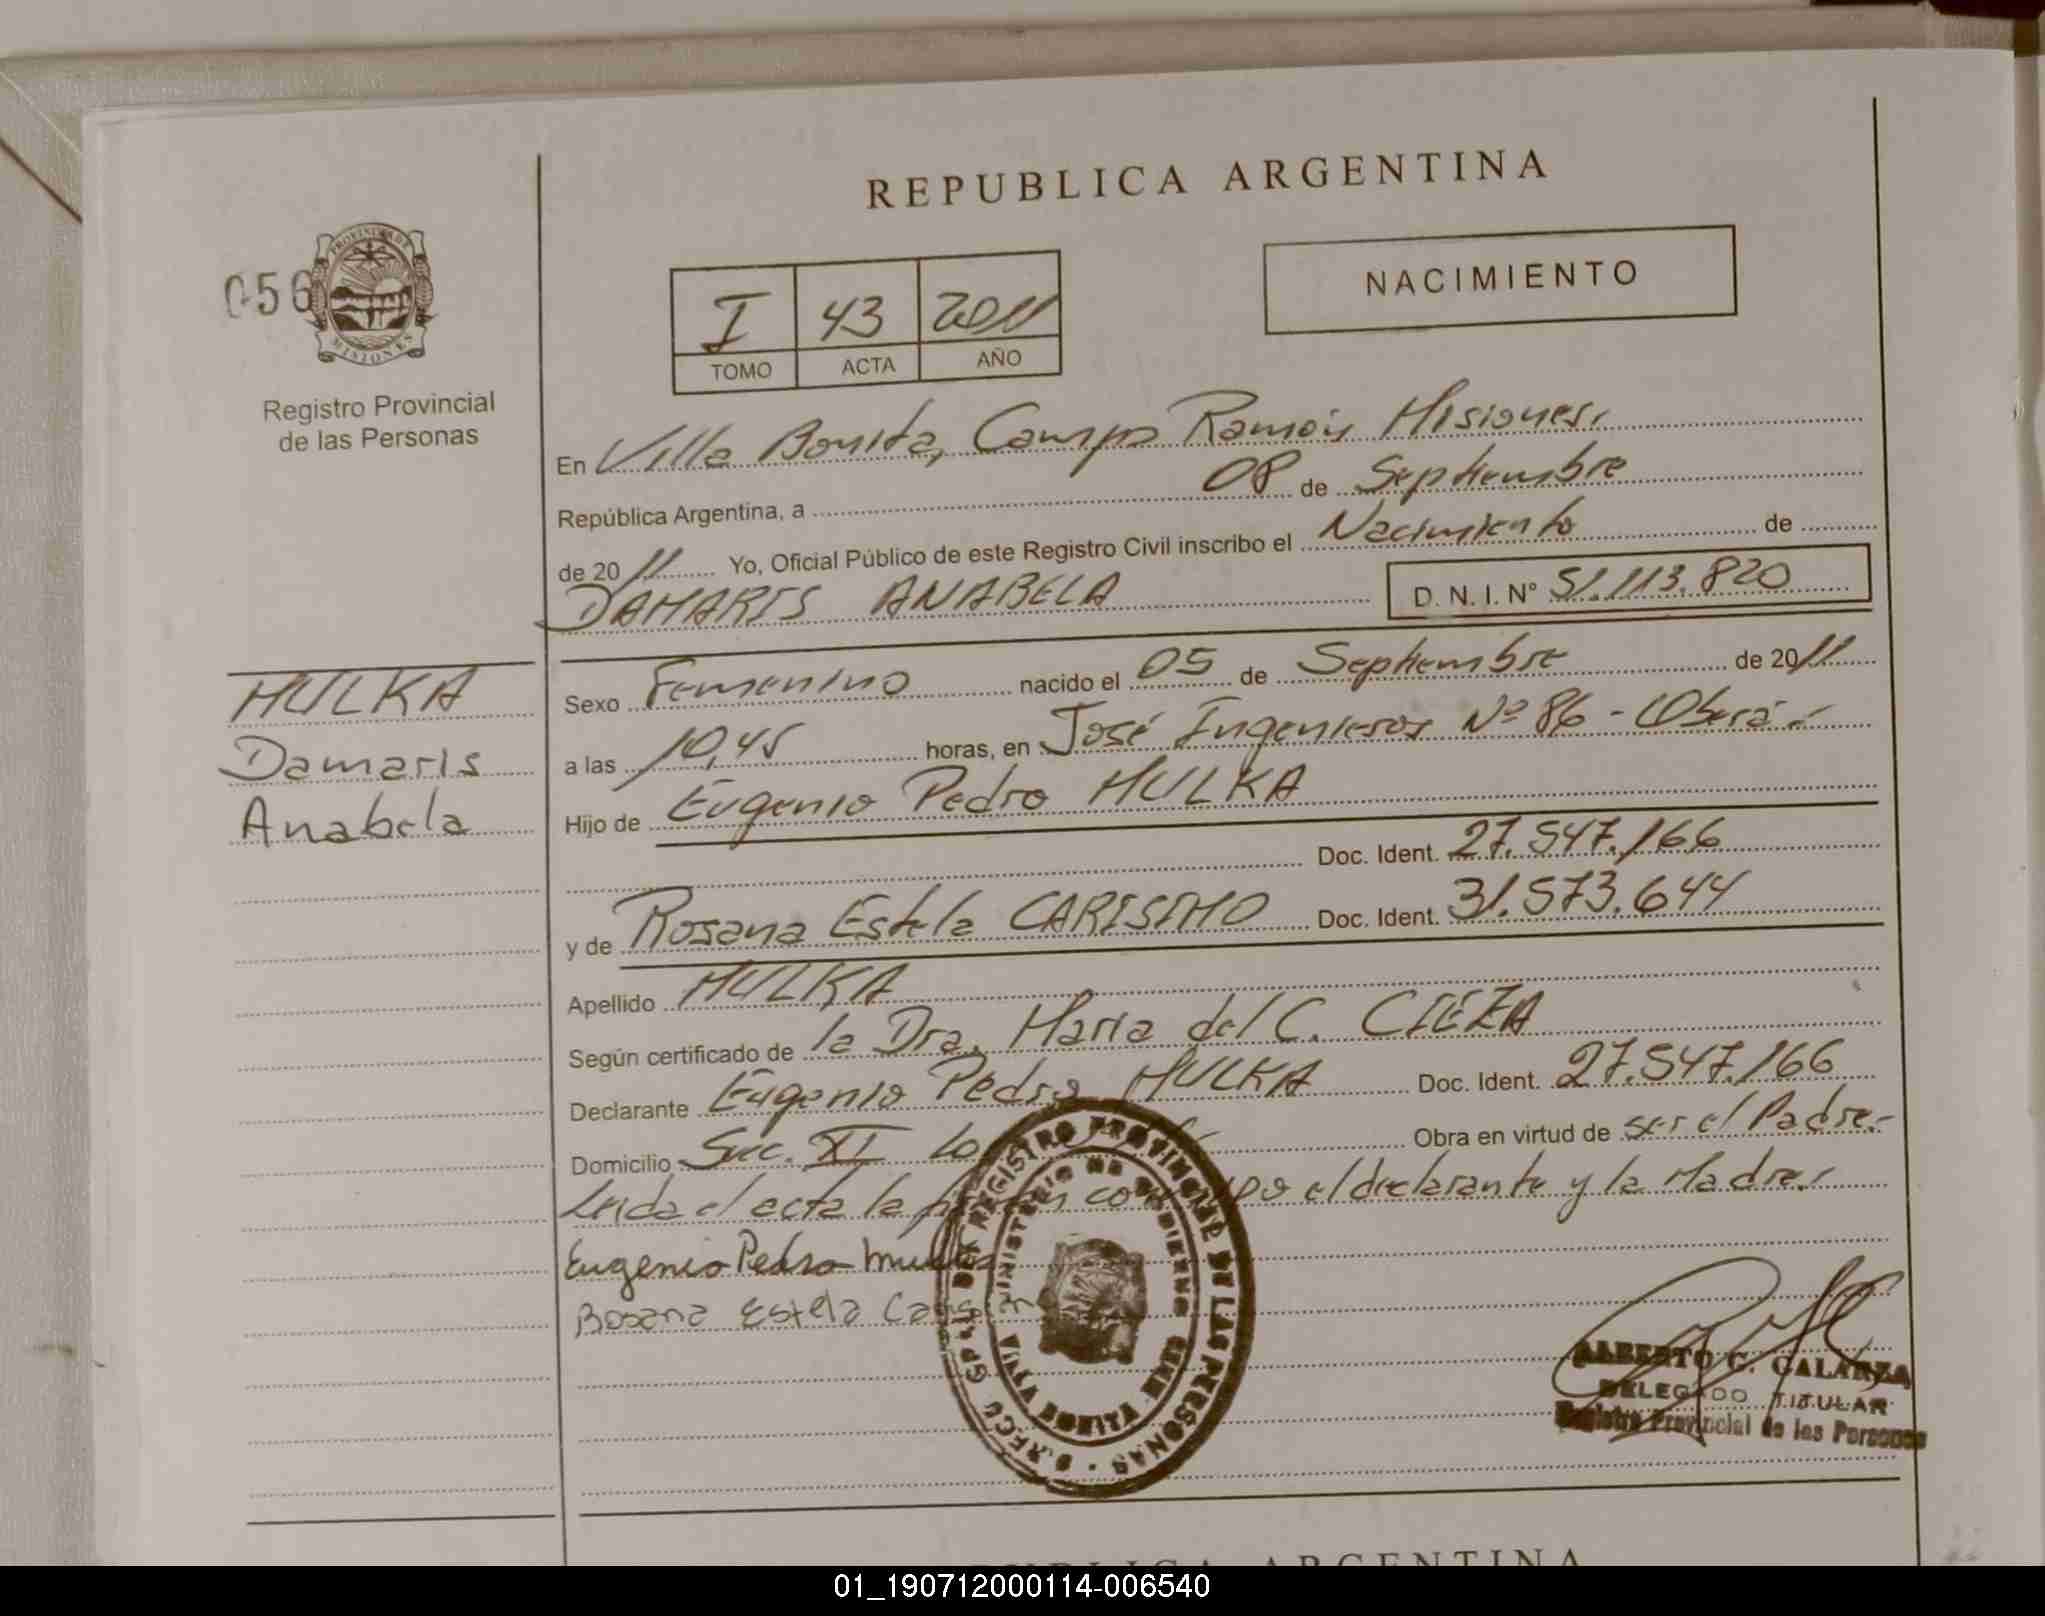 REPUBLICA ARGENTINA
NACIMIENTO
056
PROVINCIA DE
MISIONES
Registro Provincial
de las Personas
I 43 2011
TOMO ACTA AÑO
En Villa Bonita, Campo Ramón Misiones.
República Argentina, a 08 de Septiembre
de 2011 Yo, Oficial Público de este Registro Civil inscribo el Nacimiento de
DAMARIS ANABELA D. N. I. Nº 51.113.820
HULKA
Damaris
Anabela
Sexo Femenino nacido el 05 de Septiembre de 2011
a las 10,45 horas, en José Ingenieros Nº 86 - Oberá.-
Hijo de Eugenio Pedro HULKA
Doc. Ident. 27.547.166
y de Rosana Estela CARISIMO Doc. Ident. 31.573.644
Apellido HULKA
Según certificado de la Dra. Maria del C. CIEZA
Declarante Eugenio Pedro HULKA Doc. Ident. 27.547.166
Domicilio Secc. XI Obra en virtud de ser el Padre.-
Leida el acta la el declarante y la Madre.-
Eugenio Pedro
Rosana Estela
REGISTRO PROVINCIAL DE LAS PERSONAS
MINISTERIO DE GOBIERNO
VILLA BONITA
ALBERTO G. GALARZA
DELEGADO TITULAR
Registro Provincial de las Personas
ARGENTINA
01_190712000114-006540